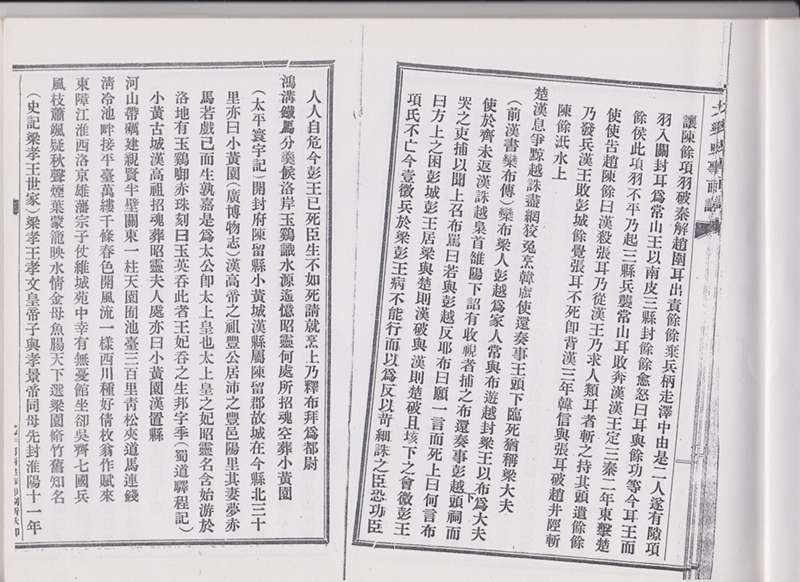 讓陳餘項羽破秦解趙圍耳出責餘餘棄兵柄走澤中由是二人遂有隙項
羽入關封耳為常山王以南皮三縣封餘餘愈怒曰耳與餘功等今耳王而
餘侯此項羽不平乃起三縣兵襲常山耳敗奔漢漢王定三秦二年東擊楚
使使告趙陳餘曰漢殺張耳乃從漢王乃求人類耳者斬之持其頭遺餘餘
乃發兵漢王敗彭城餘覺張耳不死卽背漢三年韓信與張耳破趙井陘斬
陳餘泜水上
楚漢息爭黥越誅盡網狡兔烹韓盧使還奏事王頭下臨死猶稱梁大夫
(前漢書欒布傳)欒布梁人彭越為家人常與布遊越封梁王以布為大夫
使於齊未返漢誅越梟首雒陽下詔有收視者捕之布還奏事彭越頭下祠而
哭之吏捕以聞上召布罵曰若與彭越反耶布曰願一言而死上曰何言布
曰方上之困彭城彭王居梁與楚則漢破與漢則楚破且垓下之會微彭王
項氏不亡今壹徵兵於梁彭王病不能行而以為反以苛細誅之臣恐功臣
人人自危今彭王已死臣生不如死請就烹上乃釋布拜為都尉
鴻溝鐵馬分羹候洛岸玉鷄識水源遙憶昭靈何處所招魂空葬小黃園
(太平寰宇記)開封府陳留縣小黃城漢縣屬陳留郡故城在今縣北三十
里亦曰小黃園(廣博物志)漢高帝之祖豐公居沛之豐邑陽里其妻夢赤
馬若戲已而生孰嘉是為太公卽太上皇也太上皇之妃昭靈名含始游於
洛地有玉鷄啣赤珠刻曰玉英吞此者王妃吞之生邦字季(蜀道驛程記)
小黃古城漢高祖招魂葬昭靈夫人處亦曰小黃園漢置縣
河山帶礪建親賢半壁關東一柱天園囿池臺三百里靑松夾道馬連錢
淸泠池畔接平臺萬縷千條春色開風流一樣西川種好倩枚翁作賦來
東障江淮西洛京雄藩宗子仗維城苑中幸有無憂館坐卻吳齊七國兵
風枝蕭颯疑秋聲煙葉蒙籠映水情金母魚腸天下選梁園脩竹舊知名
(史記梁孝王世家)梁孝王孝文皇帝子與孝景帝同母先封淮陽十一年